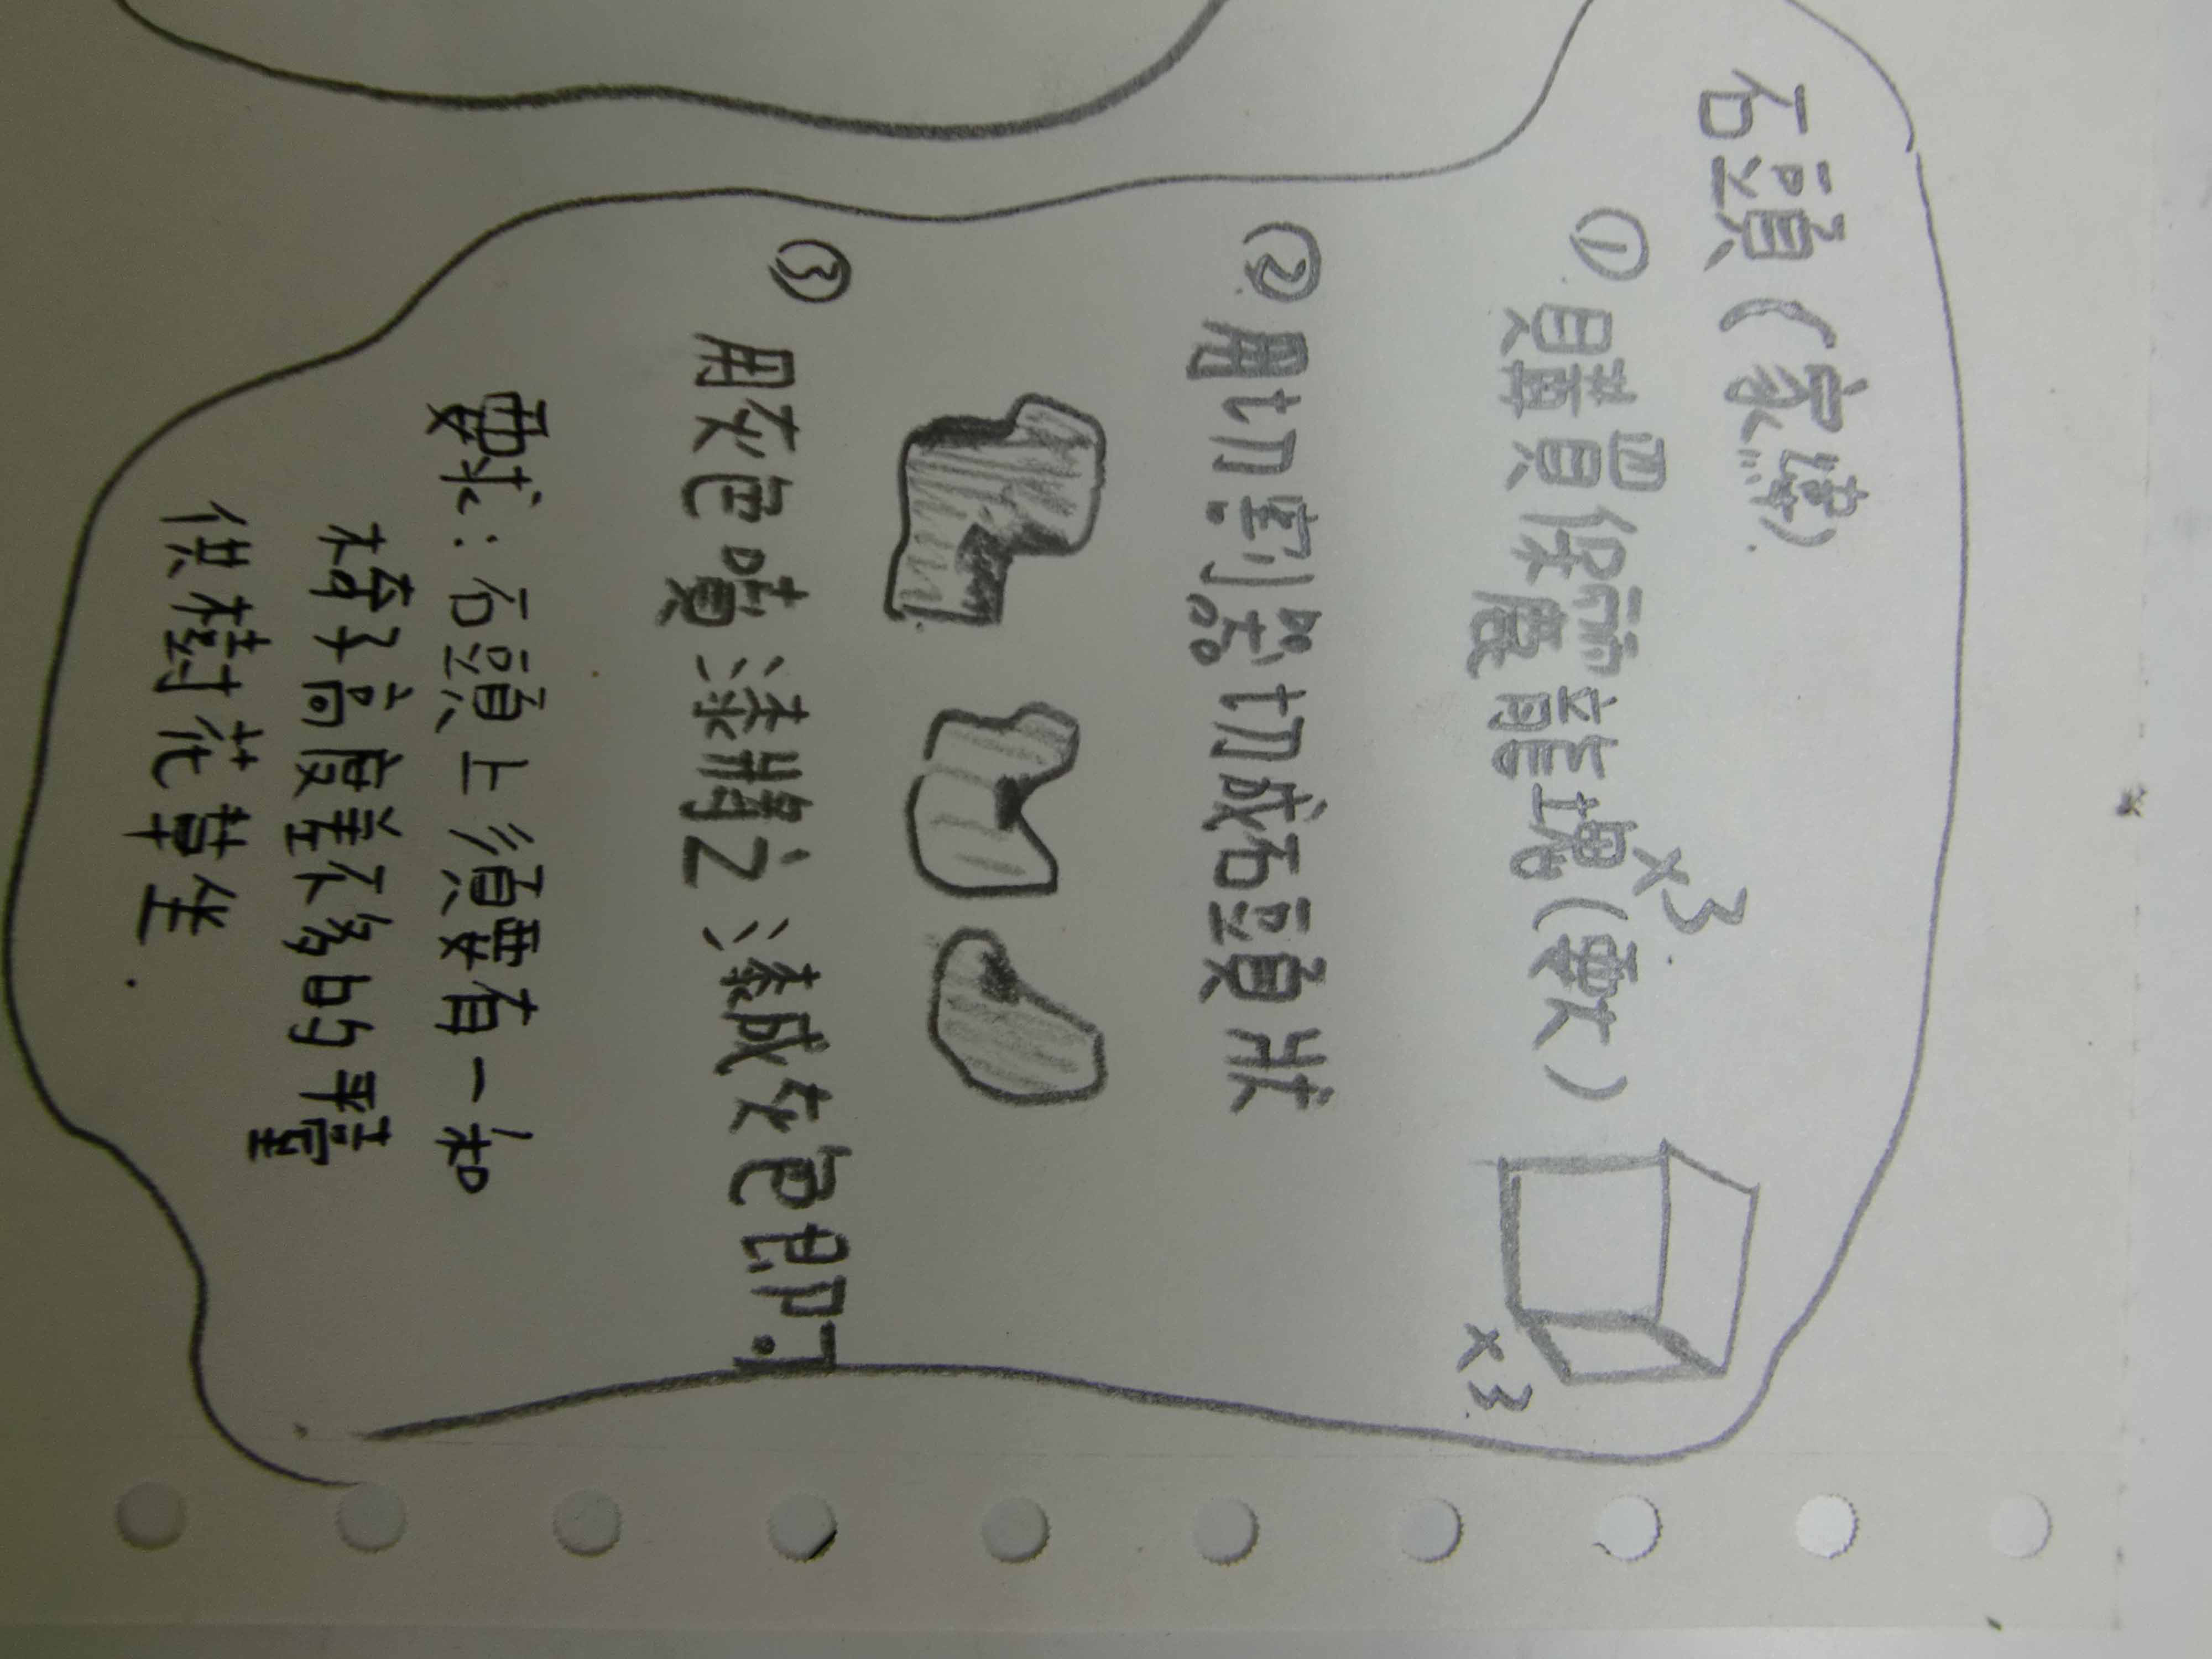 石頭（家煒）
①買購買保麗龍塊（要大）
x3
x3
②用切割器切成石頭狀
③用灰色噴漆將之漆成灰色即可
要求：石頭上須要有一和
椅子高度差不多的平檯
供樹花草坐